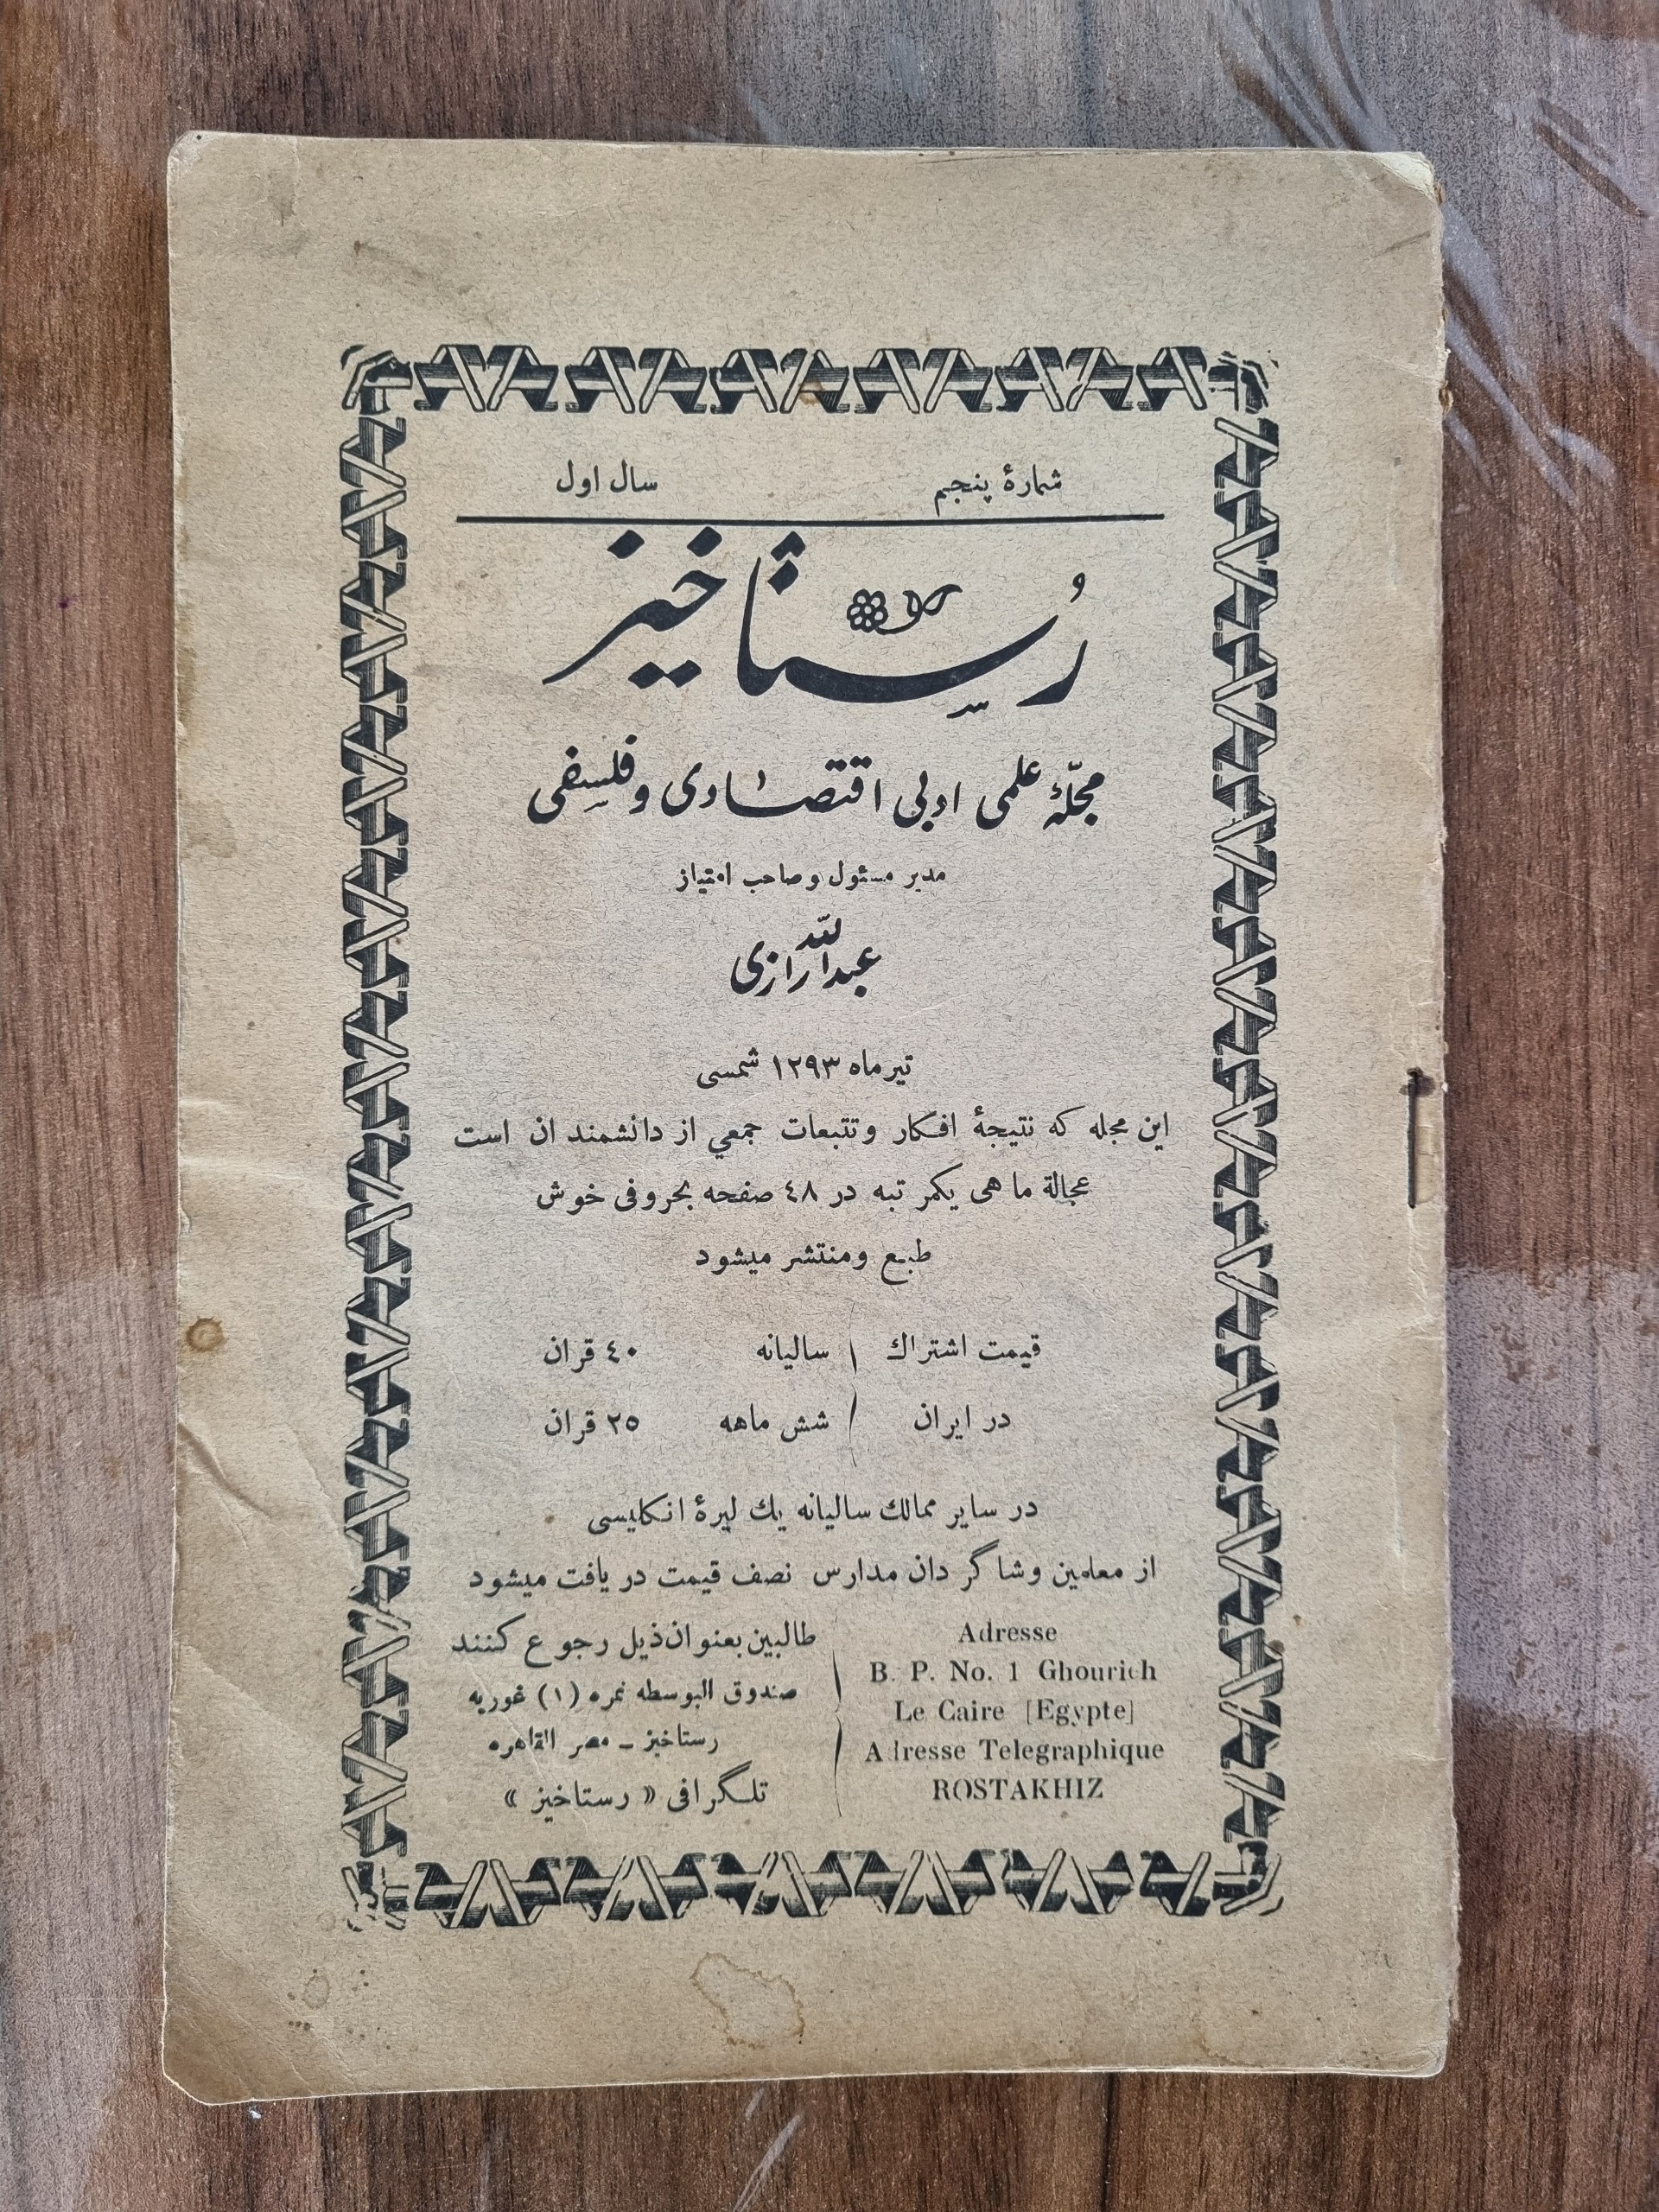 شمارهٔ پنجم سال اول
رُستاخیز
مجلّهٔ علمی ادبی اقتصادی وفلسفی
مدیر مسئول وصاحب امتیاز
عبدالله رازی
تیرماه ۱۲۹۳ شمسی
این مجله که نتیجهٔ افکار وتتبعات جمعي از دانشمند ان است
عجالة ما هی یکمر تبه در ٤٨ صفحه بحروفی خوش
طبع ومنتشر میشود
قیمت اشتراك سالیانه ٤٠ قران
در ایران شش ماهه ٢٥ قران
در سایر ممالك سالیانه یك لیرهٔ انکلیسی
از معلمین وشاگر دان مدارس نصف قیمت در یافت میشود
طالبین بعنوان ذیل رجوع کنند
صندوق البوسطه نمره (١) غوریه
رستاخیز – مصر القاهره
تلگرافی « رستاخیز »
Adresse
B. P. No. 1 Ghourieh
Le Caire [Egypte]
Adresse Telegraphique
ROSTAKHIZ